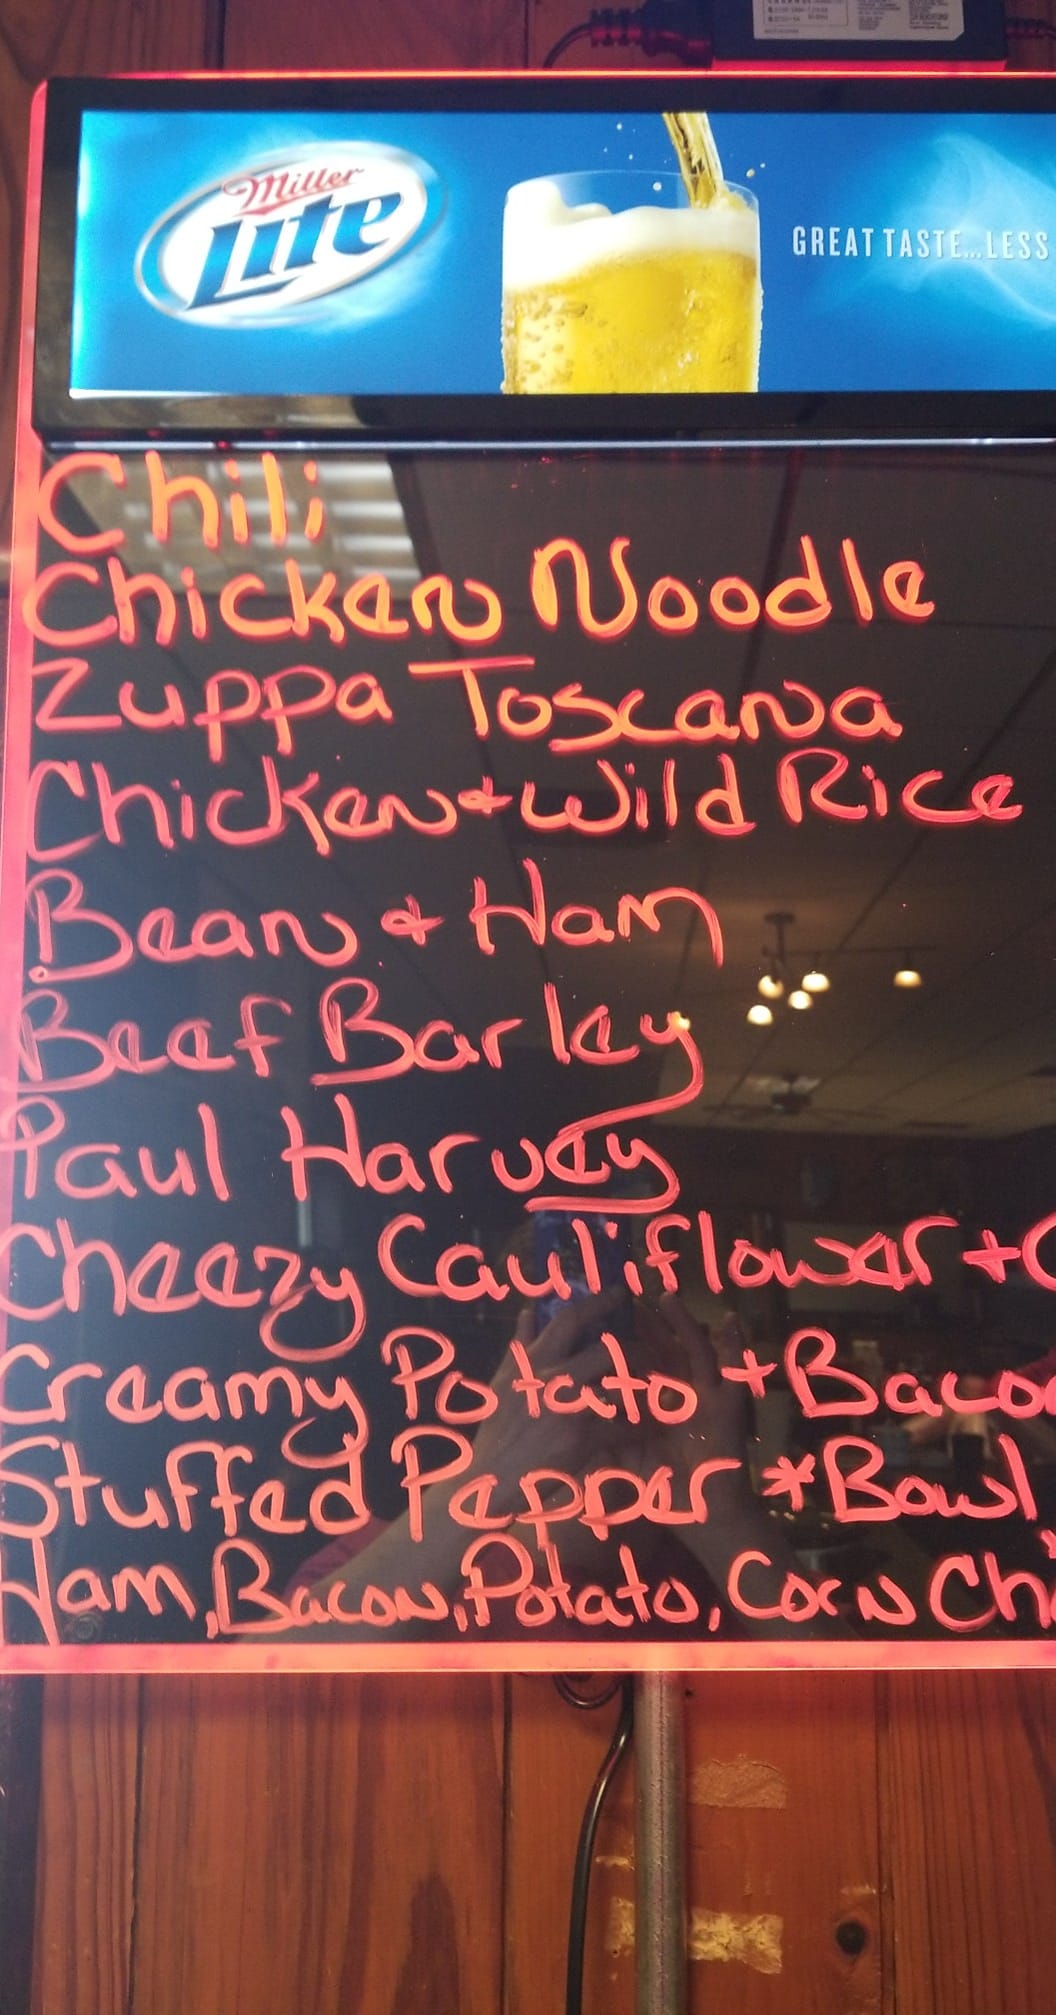 Miller
Lite
GREAT TASTE...LESS
Chili
Chicken Noodle
Zuppa Toscana
Chicken & Wild Rice
Bean & Ham
Beef Barley
Paul Harvey
Cheezy Cauliflower + C
Creamy Potato + Bacon
Stuffed Pepper *Bowl
Ham, Bacon, Potato, Corn Ch